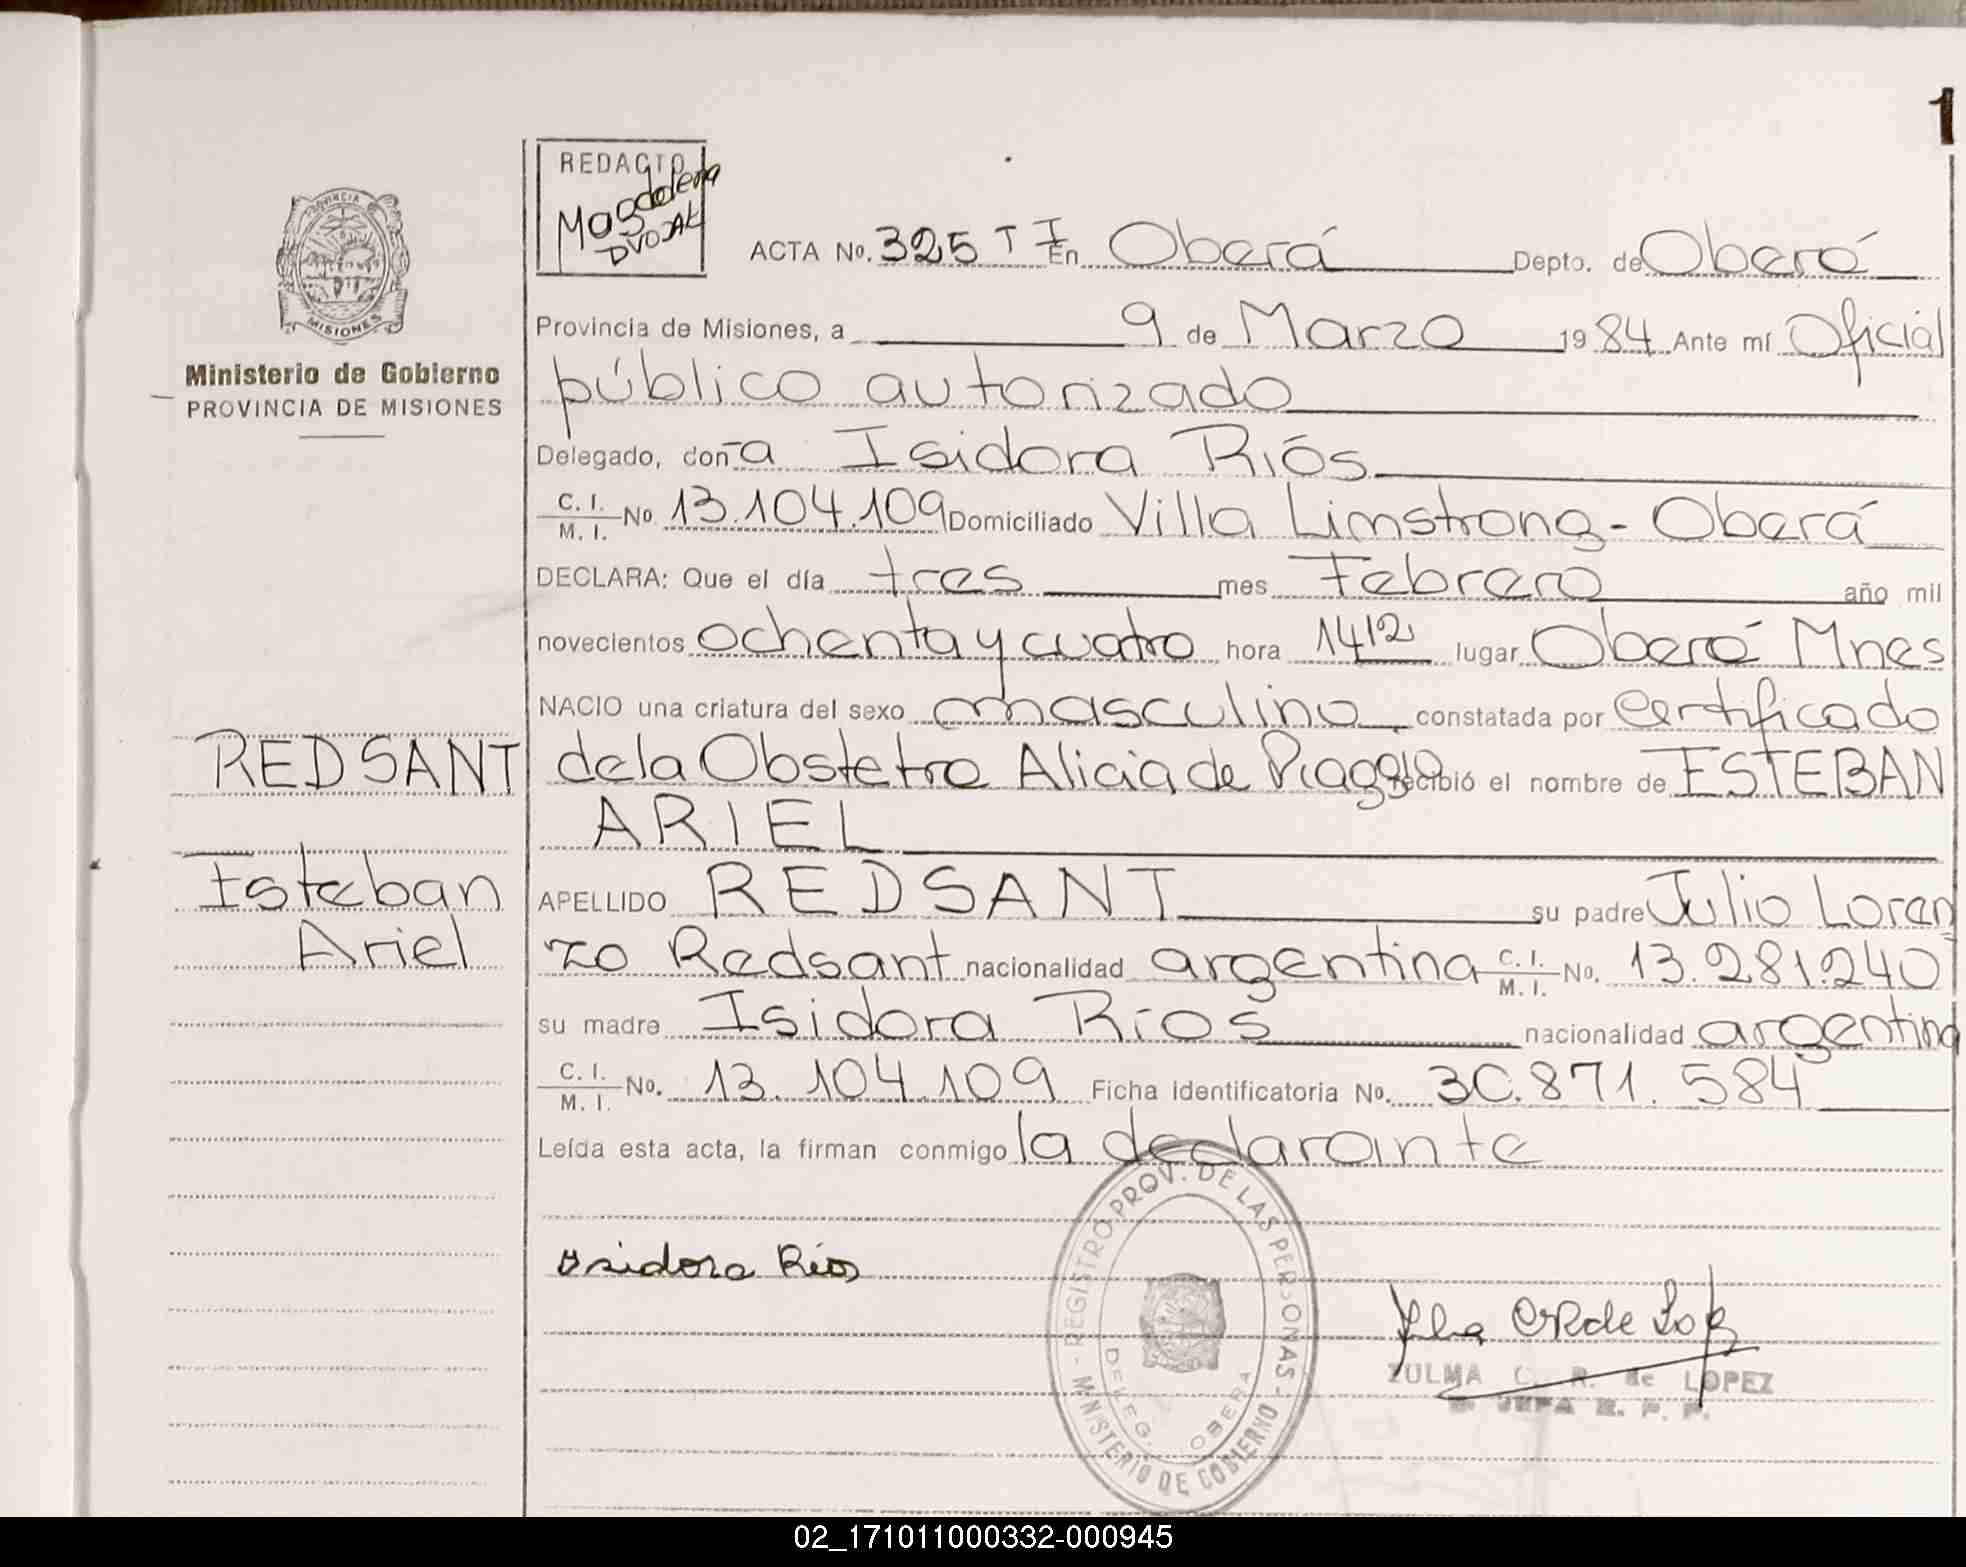 1
REDACTO
Magdalena
DVOJAK
PROVINCIA
MISIONES
Ministerio de Gobierno
PROVINCIA DE MISIONES
ACTA No. 325 T I En Oberá Depto. de Oberá
Provincia de Misiones, a 9 de Marzo 1984 Ante mí Oficial
público autorizado
Delegado, doña Isidora Ríos
C. I. / M. I. No 13.104.109 Domiciliado Villa Limstrong - Oberá
DECLARA: Que el día tres mes Febrero año mil
novecientos ochenta y cuatro hora 14 12 lugar Oberá Mnes
NACIO una criatura del sexo masculino constatada por certificado
REDSANT
de la Obstetra Alicia de Piaggio recibió el nombre de ESTEBAN
ARIEL
Esteban
Ariel
APELLIDO REDSANT su padre Julio Loren
zo Redsant nacionalidad argentina C. I. / M. I. No. 13.281.240=
su madre Isidora Ríos nacionalidad argentina
C. I. / M. I. No. 13.104.109 Ficha identificatoria No. 30.871.584
Leída esta acta, la firman conmigo la declarante
Isidora Ríos
REGISTRO PROV. DE LAS PERSONAS - MINISTERIO DE GOBIERNO -
DELEG. OBERA
ZULMA C. R. de LOPEZ
JEFA R. P. P.
02_171011000332-000945